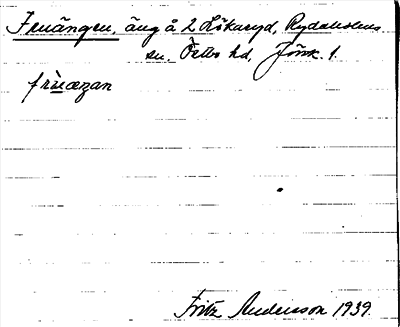 Fruängen, äng å 2 Hökaryd, Rydaholms
sn. Östbo hd, Jönk. l.
Fritz Andersson 1939.